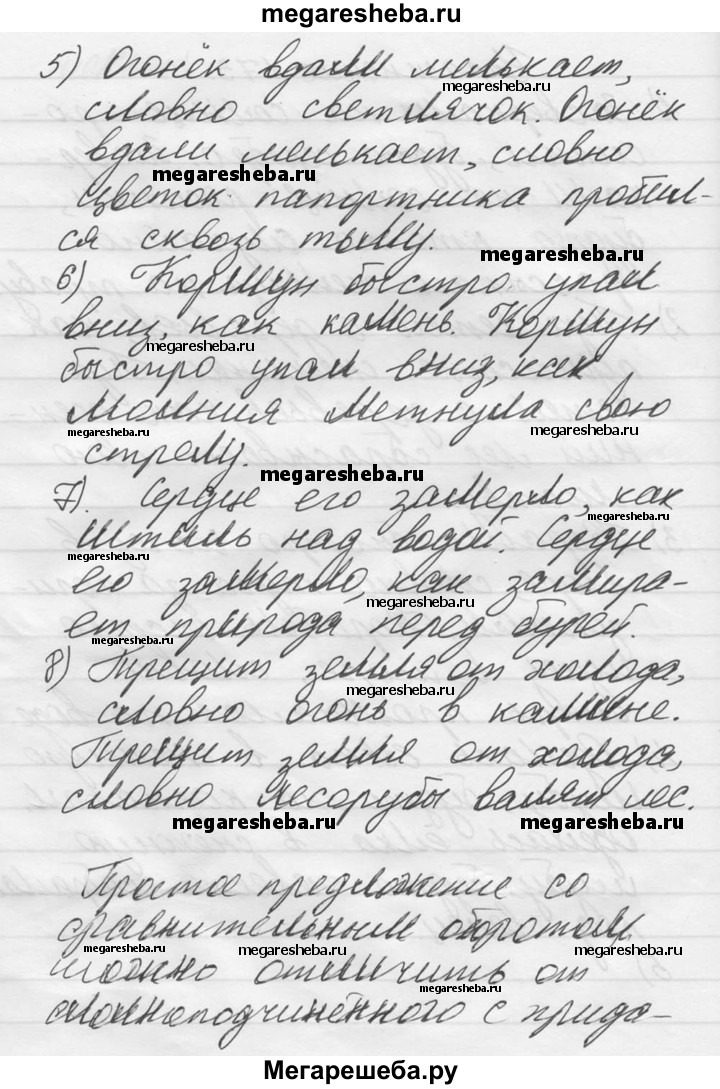 megaresheba.ru
5) Огонёк вдали мелькает,
megaresheba.ru
словно светлячок. Огонёк
вдали мелькает, словно
megaresheba.ru
цветок папортника пробил-
ся сквозь тьму.
megaresheba.ru
6) Коршун быстро упал
вниз, как камень. Коршун
megaresheba.ru
быстро упал вниз, как
молния метнула свою
megaresheba.ru megaresheba.ru
стрелу.
megaresheba.ru
7). Сердце его замерло, как
megaresheba.ru
штиль над водой. Сердце
megaresheba.ru
его замерло, как замира-
megaresheba.ru
ет природа перед бурей.
megaresheba.ru
8) Трещит земля от холода,
megaresheba.ru
словно огонь в камине.
Трещит земля от холода,
словно лесорубы валят лес.
megaresheba.ru megaresheba.ru
Простое предложение со
сравнительным оборотом
megaresheba.ru megaresheba.ru megaresheba.ru
можно отличить от
сложноподчинённого с прида-
Мегарешеба.ру